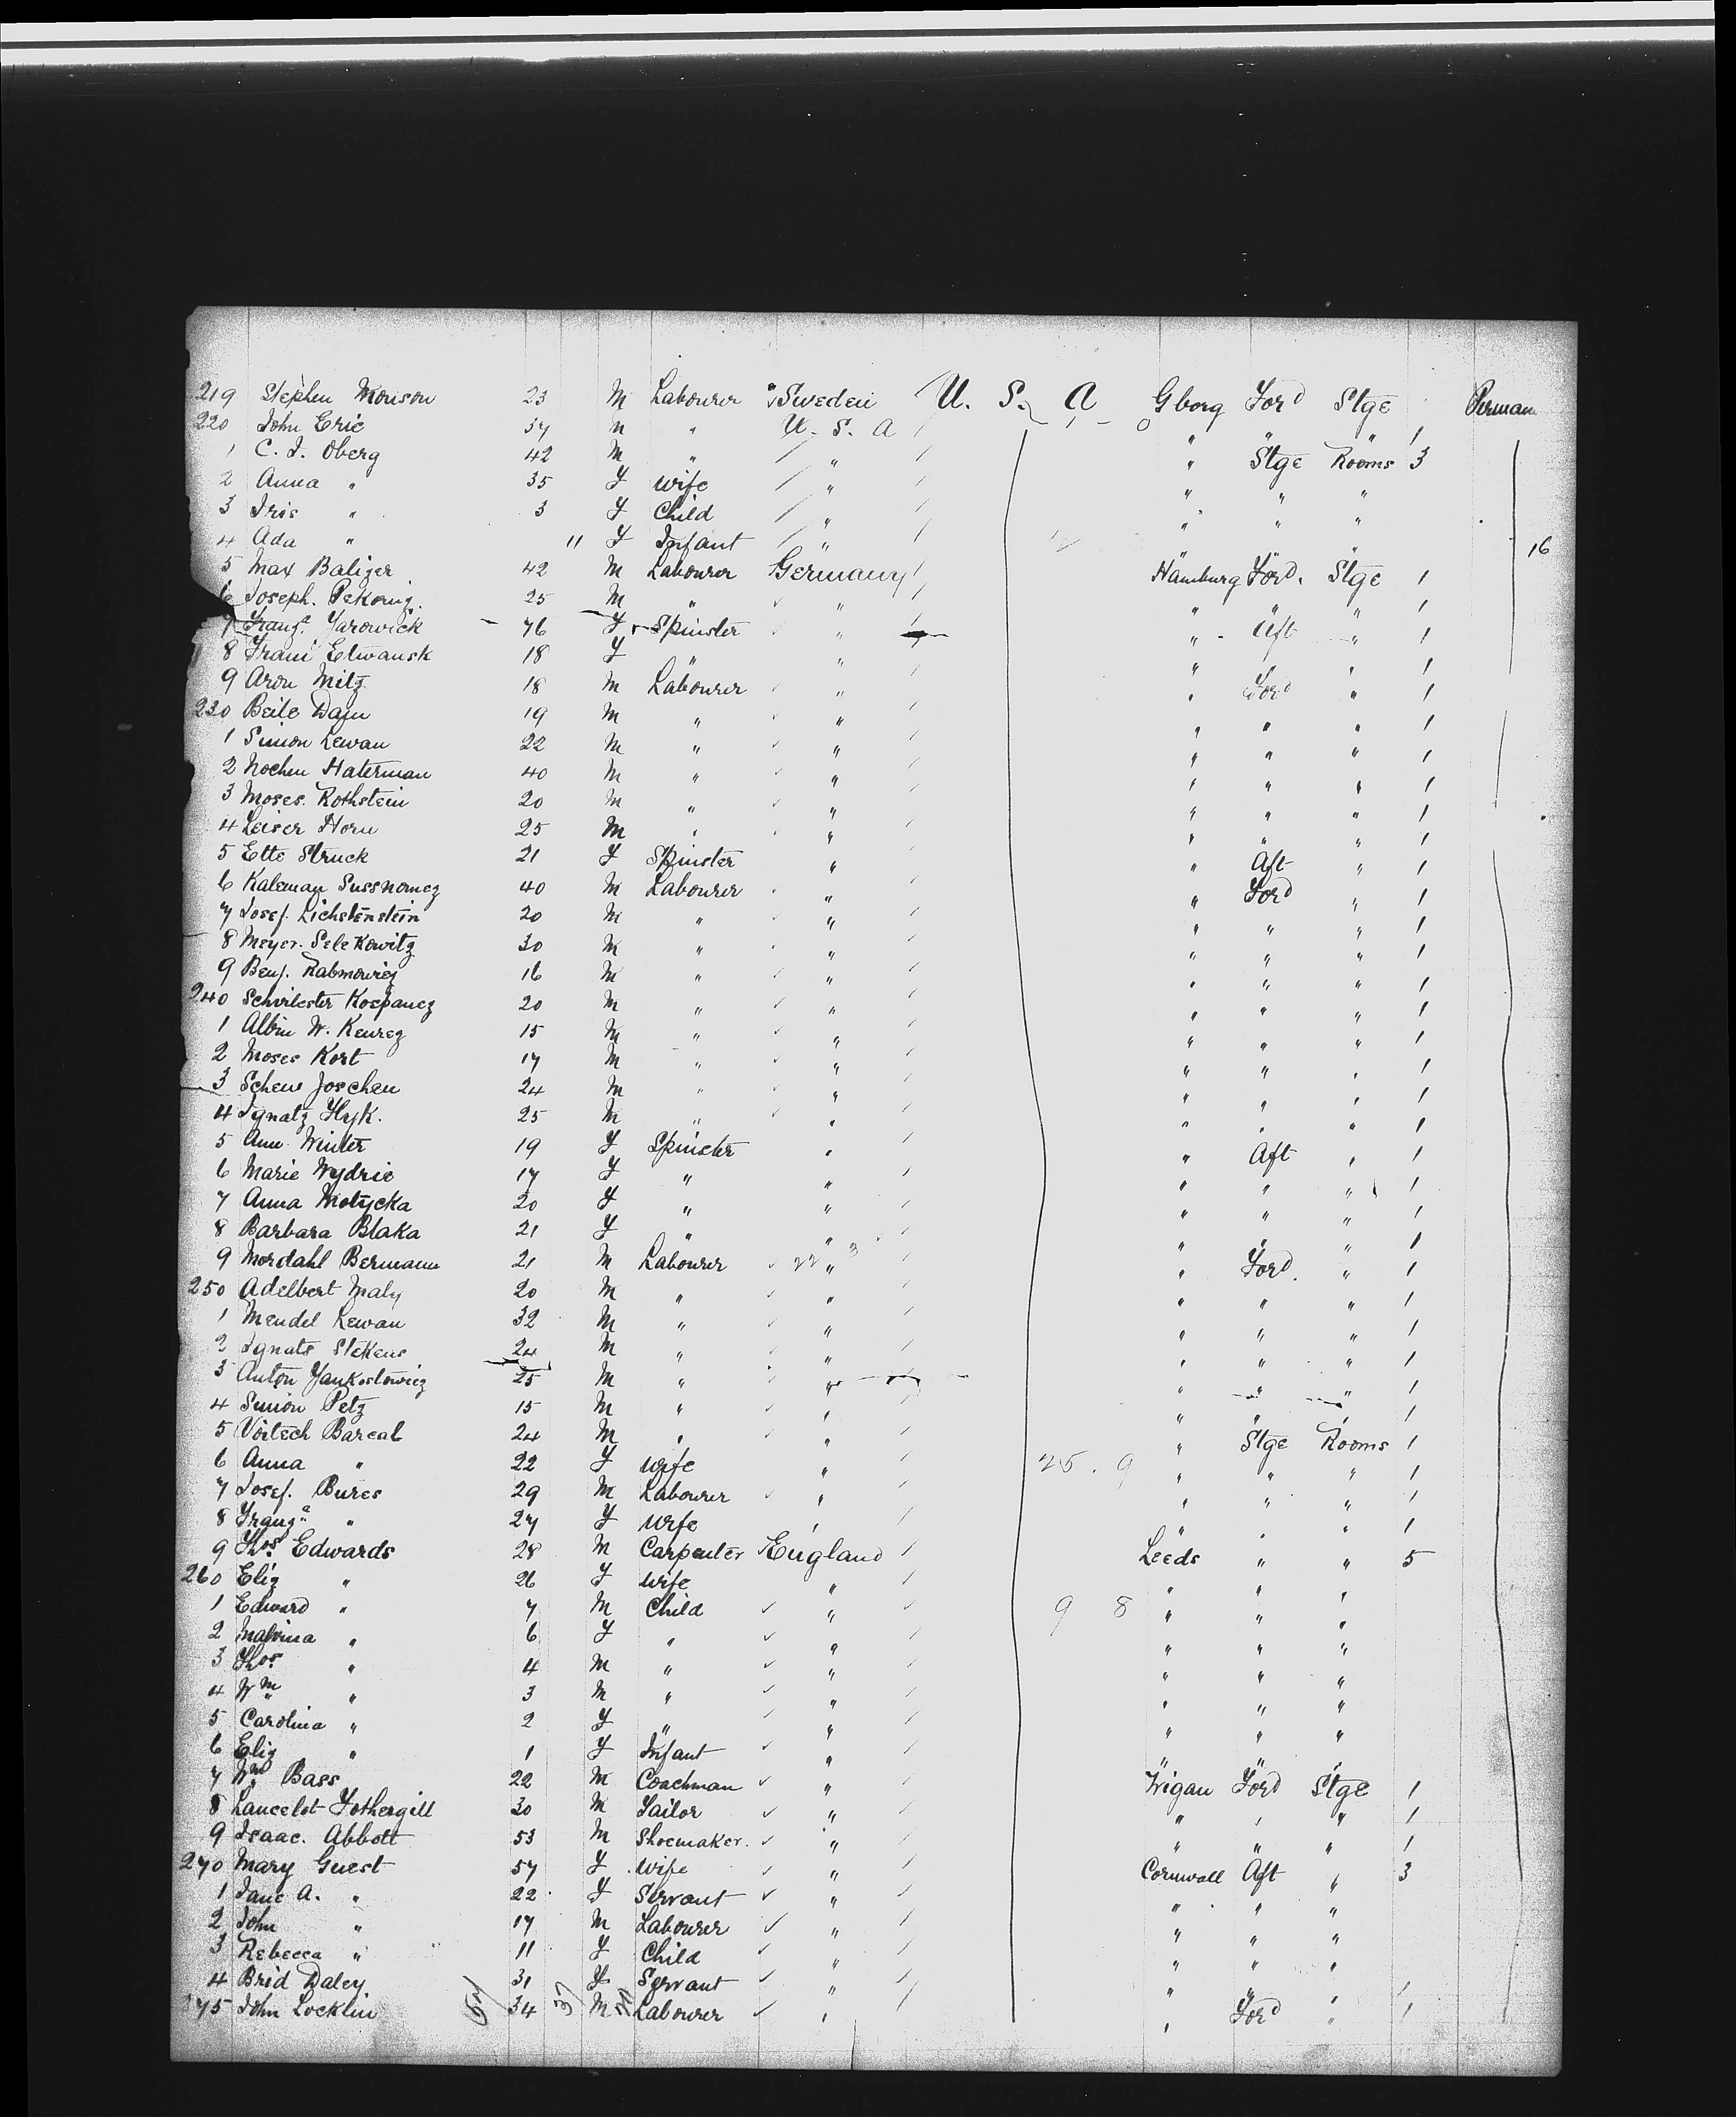 219 Stephen Monson 23 M Labourer Sweden U. S. A Gborg Ford Stge Perman
220 John Eric 37 M " U. S. A " " " 1
1 C. J. Oberg 42 M " " " Stge Rooms 3
2 Anna " 35 F Wife " " " "
3 Iris " 3 F Child " " " "
4 Ada " 11 F Infant " " " " 16
5 Max Baliger 42 M Labourer Germany Hamburg Ford. Stge 1
6 Joseph. Pekorny. 25 M " " " " " 1
7 Franza Yarowick 76 F Spinster " " Aft " 1
8 Frani Etwansk 18 F " " " " " 1
9 Aron Mitz 18 M Labourer " " Ford " 1
230 Beile Dajn 19 M " " " " " 1
1 Simon Lewan 22 M " " " " " 1
2 Nochem Haterman 40 M " " " " " 1
3 Moses. Rothstein 20 M " " " " " 1
4 Leiser Horn 25 M " " " " " 1
5 Ette Struck 21 F Spinster " " Aft " 1
6 Kaleman 40 M Labourer " " Ford " 1
7 Josef. Lichstenstein 20 M " " " " " 1
8 Meyer. Selekowitz 30 M " " " " " 1
9 Benj. Rabmowiez 16 M " " " " " 1
240 Schvilester 20 M " " " " " 1
1 Albin W. Kenrez 15 M " " " " " 1
2 Moses Kort 17 M " " " " " 1
3 Schew Joschen 24 M " " " " " 1
4 Ignatz Hyk. 25 M " " " " " 1
5 Ann Winter 19 F Spinster " " Aft " 1
6 Marie Wydrie 17 F " " " " " 1
7 Anna Motycka 20 F " " " " " 1
8 Barbara Blaka 21 F " " " " " 1
9 Mordahl Bermann 21 M Labourer " " Ford. " 1
250 Adelbert Maly 20 M " " " " " 1
1 Mendel Lewan 32 M " " " " " 1
2 Ignats Stekens 24 M " " " " " 1
3 Anton Yankostowiez 25 M " " " " " 1
4 Simon Petz 15 M " " " " " 1
5 Voitech Bareal 24 M " " " Stge Rooms 1
6 Anna " 22 F Wife " 25. 9 " " " 1
7 Josef. Bures 29 M Labourer " " " " 1
8 Franza " 27 F Wife " " " " 1
9 Thos Edwards 28 M Carpenter England Leeds " " 5
260 Eliz " 26 F Wife " " " "
1 Edward " 7 M Child " 9 8 " " "
2 Malvina " 6 F " " " " "
3 Thos " 4 M " " " " "
4 Wm " 3 M " " " " "
5 Carolina " 2 F " " " " "
6 Eliz " 1 F Infant " " " "
7 Wm Bass 22 M Coachman " Wigan Ford Stge 1
8 Lancelot Fothergill 30 M Tailor " " " " 1
9 Isaac. Abbott 53 M Shoemaker. " " " " 1
270 Mary Guest 57 F Wife " Cornwall Aft " 3
1 Jane A. " 22 F Servant " " " "
2 John " 17 M Labourer " " " "
3 Rebecca " 11 F Child " " " "
4 Brid Daley 31 F Servant " " " " 1
275 John Locklin 34 M Labourer " " Ford " 1